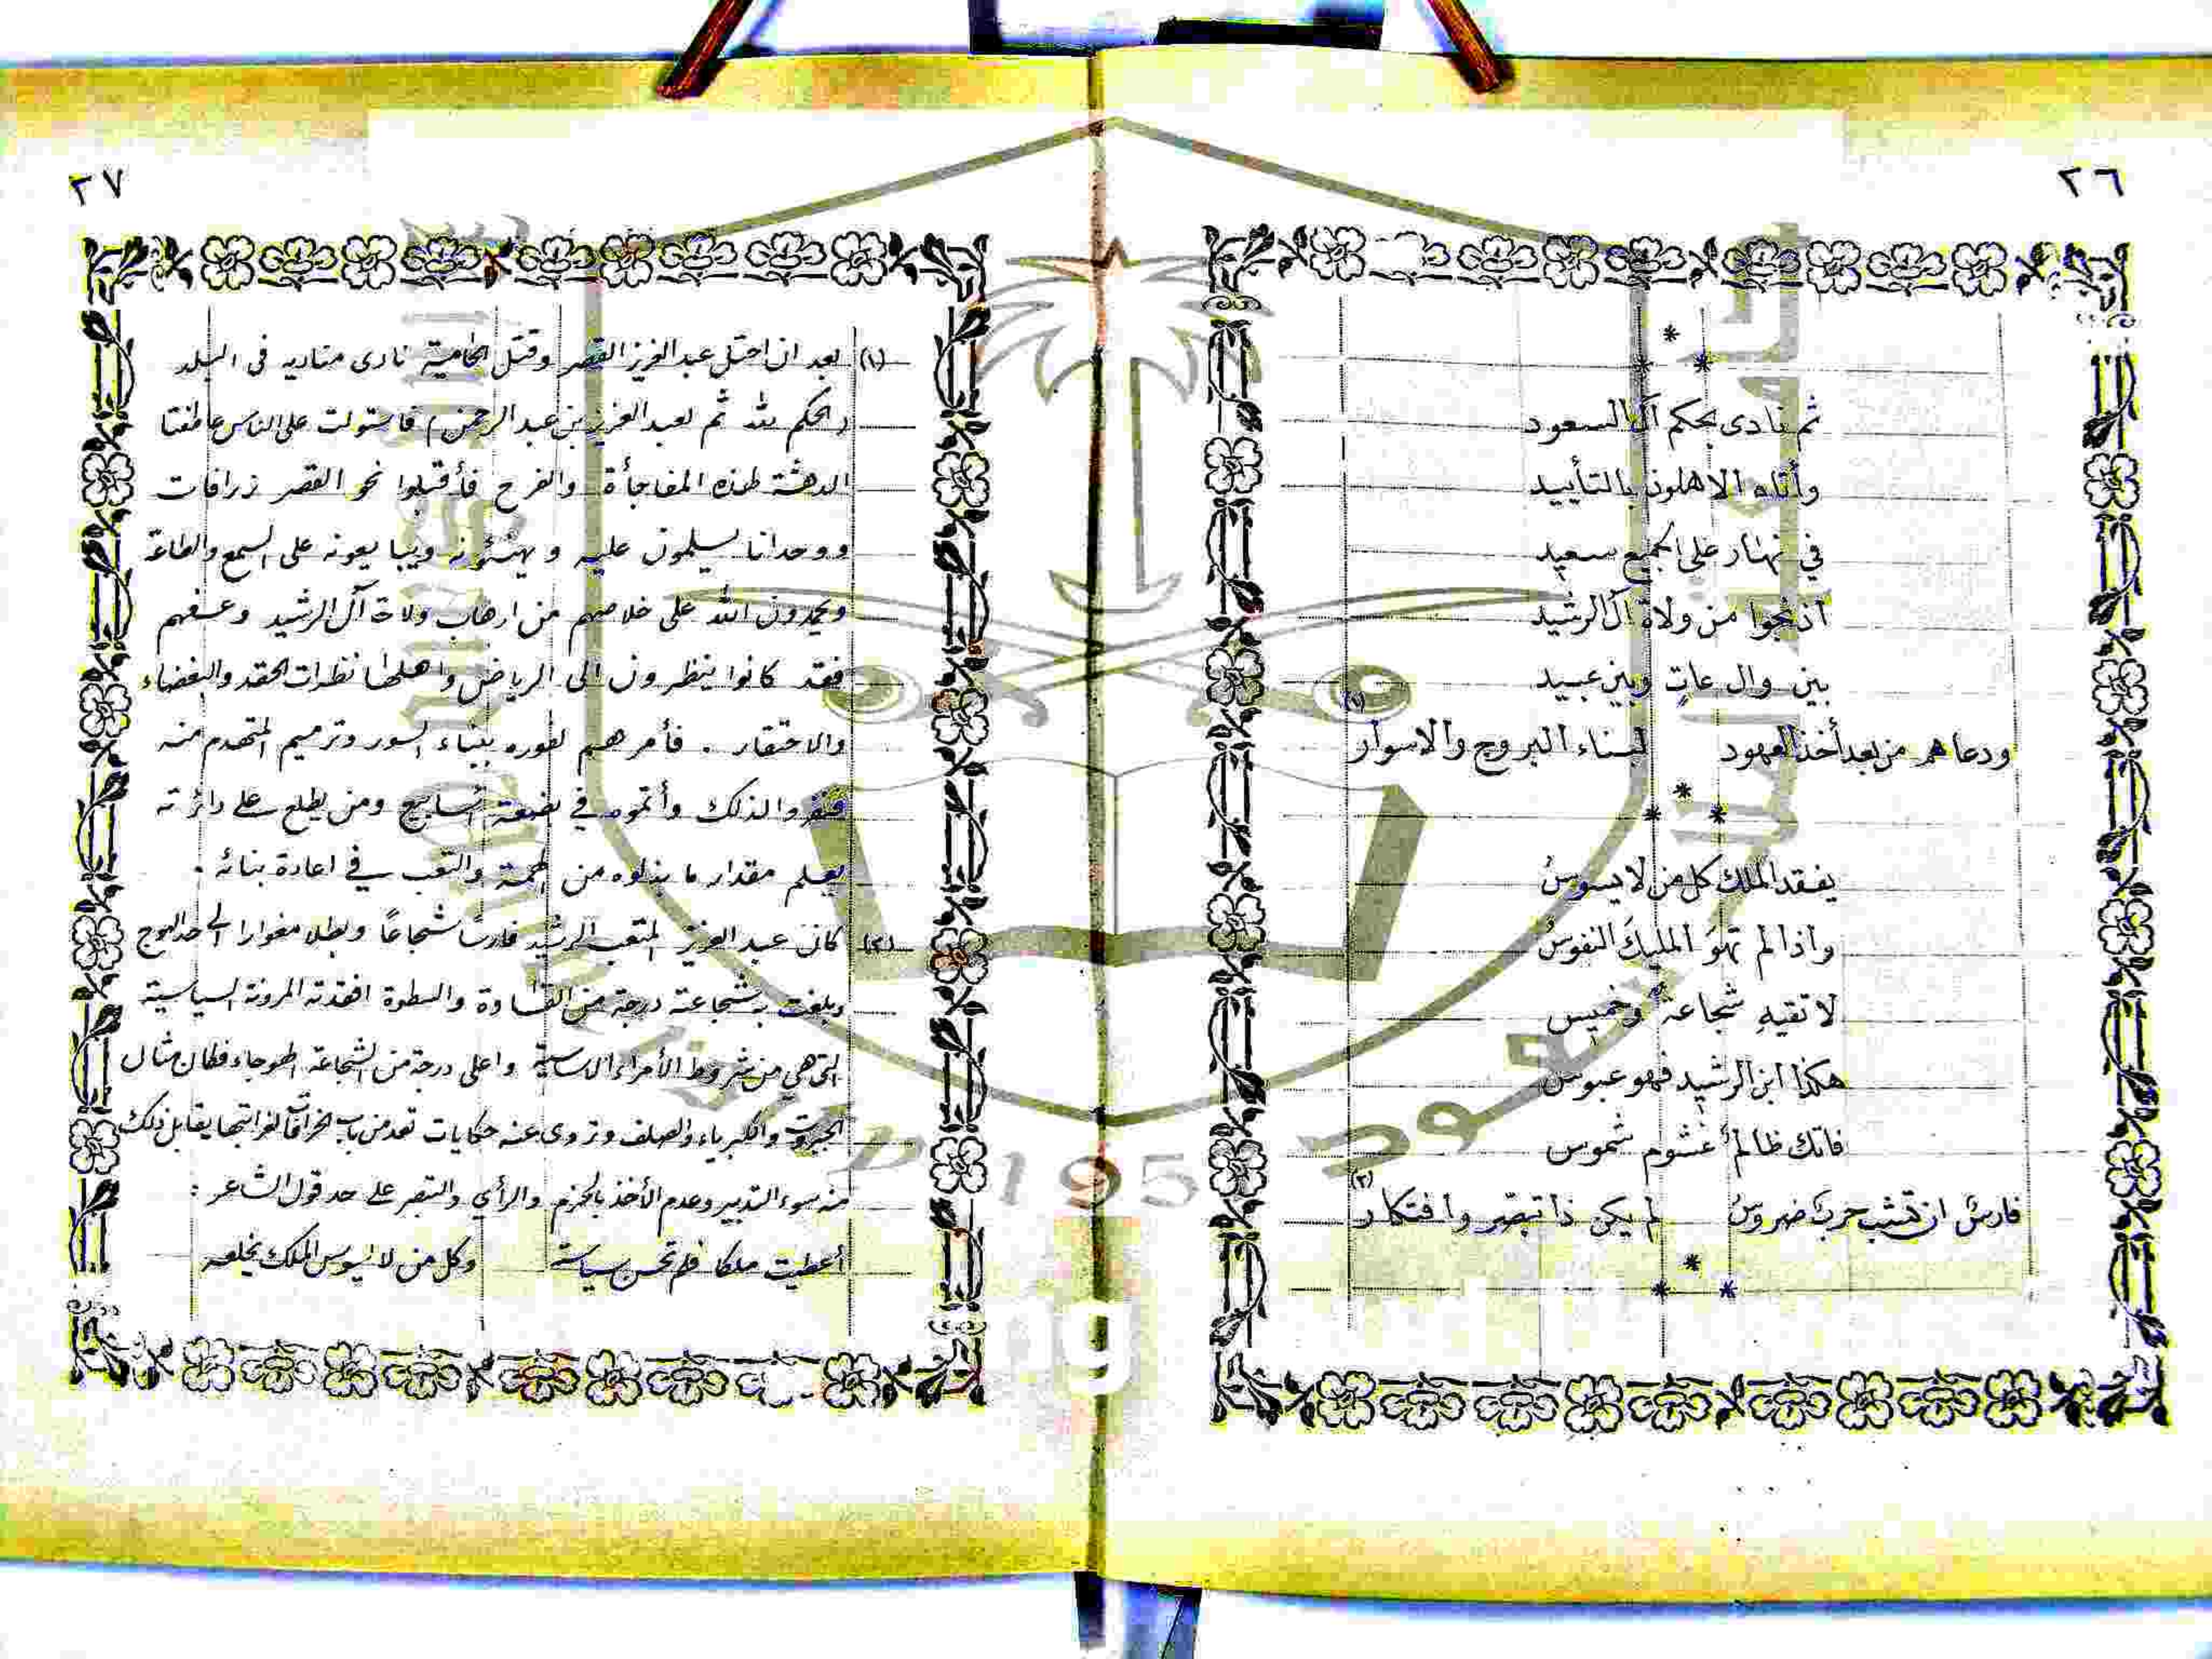 ٢٦
*
* *
ثم نادى بحكم آل السعود
وأتاه الاهلون بالتأييد
في نهار على الجميع سعيد
اذ نجوا من ولاة آل الرشيد
بين وال عاتٍ وبين عبيد
ودعاهم من بعد أخذ العهود لبناء البروج والاسوار (١)
*
* *
يفقد الملك كل من لا يسوسُ
واذا لم تهوَ المليكَ النفوسُ
لا تقيهِ شجاعة وخميس
هكذا ابن الرشيد فهو عبوس
فاتك ظالم غشوم شموس
فارسٌ ان تشب حربٌ ضروسُ لم يكن ذا تبصّر وافتكار (٢)
*
* *
٢٧
(١) بعد ان احتل عبد العزيز القصر وقتل الحامية نادى مناديه فى البلد
(الحكم لله ثم لعبد العزيز بن عبد الرحمن) فاستولت على الناس عاطفتا
الدهشة لهذه المفاجأة والفرح فأقبلوا نحو القصر زرافات
ووحدانا يسلمون عليه ويهنئونه ويبايعونه على السمع والطاعة
ويحمدون الله على خلاصهم من ارهاب ولاة آل الرشيد وعسفهم
فقد كانوا ينظرون الى الرياض واهلها نظرات الحقد والبغضاء
والاحتقار . فأمرهم لفوره ببناء السور وترميم المتهدم منه
فنفروا لذلك وأتموه في بضعة أسابيع ومن يطلع على دائرته
يعلم مقدار ما بذلوه من الهمة والتعب في اعادة بنائه .
(٢) كان عبد العزيز المتعب الرشيد فارسا شجاعاً وبطلا مغوارا الى حد الهوج
وبلغت به شجاعته درجة من القساوة والسطوة افقدته المرونة السياسية
التى هي من شروط الأمراء الاساسية واعلى درجة من الشجاعة الهوجاء فكان مثال
الجبروت والكبرياء والصلف وتروى عنه حكايات تعد من باب الخرافات لغرابتها يقابل ذلك
منه سوء التدبير وعدم الأخذ بالحزم والرأي والتبصر على حد قول الشاعر :
أعطيت ملكا فلم تحسن سياسته وكل من لا يسوس الملك يخلعه